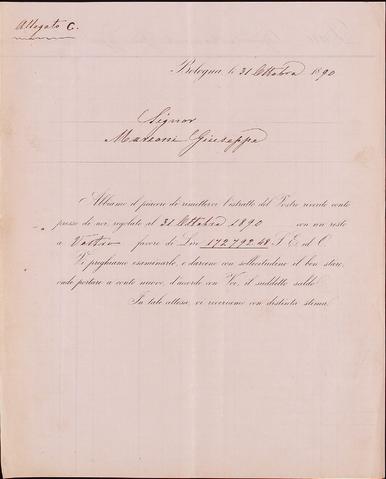 Allegato C.
Bologna, li 31 Ottobre 1890
Signor
Marconi Giuseppe
Abbiamo il piacere di rimettervi l'estratto del Vostro riverito conto
presso di noi, regolato al 31 Ottobre 1890 con un resto
a Vostro favore di Lire 172792.48 S. E. ed O.
Vi preghiamo esaminarlo, e darcene con sollecitudine il ben stare,
onde portare a conto nuovo, d'accordo con Voi, il suddetto saldo.
In tale attesa, vi riveriamo con distinta stima,